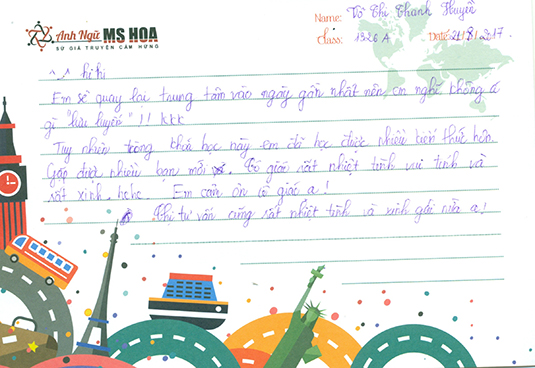 Anh Ngữ MS HOA
SỨ GIẢ TRUYỀN CẢM HỨNG
Name: Võ Thị Thanh Huyền
Class: 1326A Date: 21/8/2017.
^_^ hihi
Em sẽ quay lại trung tâm vào ngày gần nhất nên em nghĩ không có
gì "lưu luyến"!! kkk
Tuy nhiên trong khóa học này em đã học được nhiều kiến thức hơn.
Gặp được nhiều bạn mới. Cô giáo rất nhiệt tình vui tính và
rất xinh. hehe. Em cảm ơn cô giáo ạ!
Chị tư vấn cũng rất nhiệt tình và xinh gái nữa ạ!